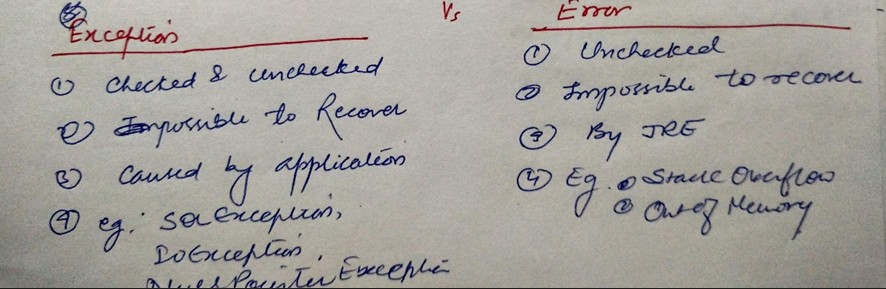 Exception
① Checked & unchecked
② Impossible to Recover
③ Caused by application
④ eg: SQLException,
IOException,
NullPointerException
Vs
Error
① Unchecked
② Impossible to recover
③ By JRE
④ Eg. ① Stack Overflow
② Out of Memory